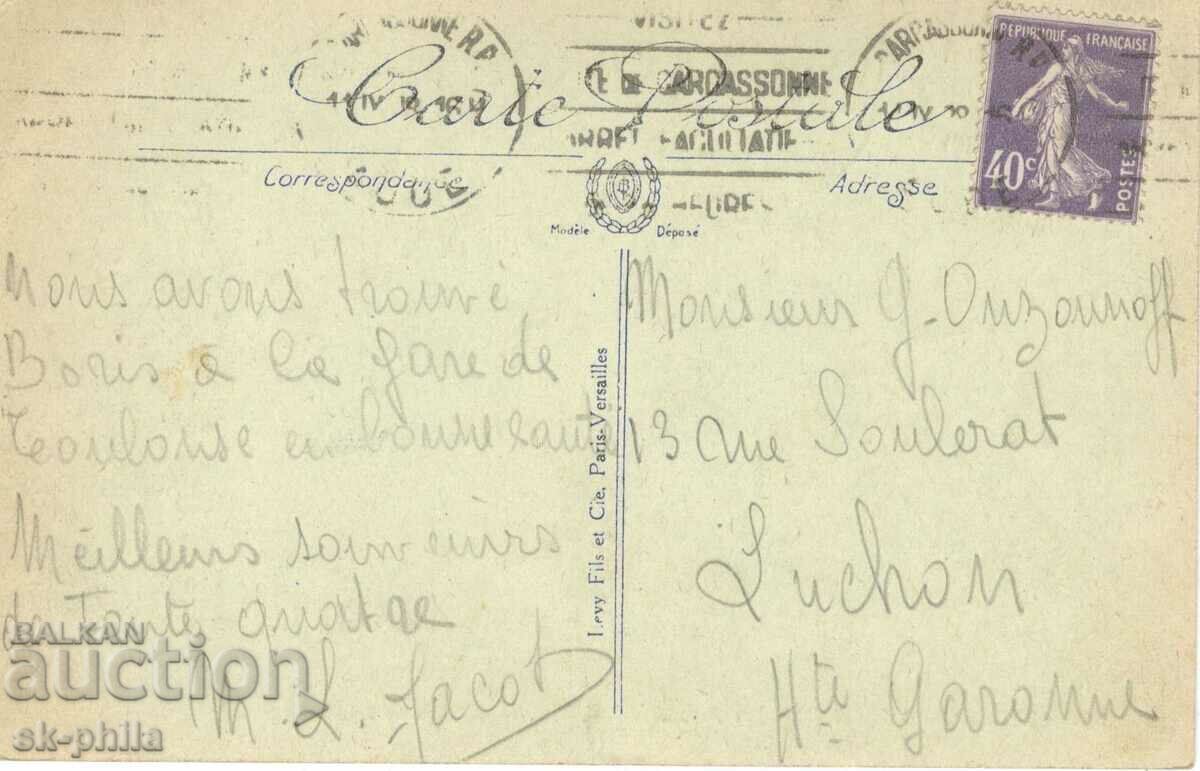 VISITEZ
CARCASSONNE
ARRET FACULTATIF
Carte Postale
RÉPUBLIQUE FRANÇAISE
40c
POSTES
Correspondance
Adresse
Modèle Déposé
Nous avons trouvé
Boris à la gare de
Toulouse en bonne santé
Meilleurs souvenirs
de Tante quatre
M. L. Jacot
Levy Fils et Cie, Paris-Versailles
Monsieur G. Ouzounoff
13 rue Soulerat
Luchon
Hte Garonne
BALKAN
auction
sk-phila